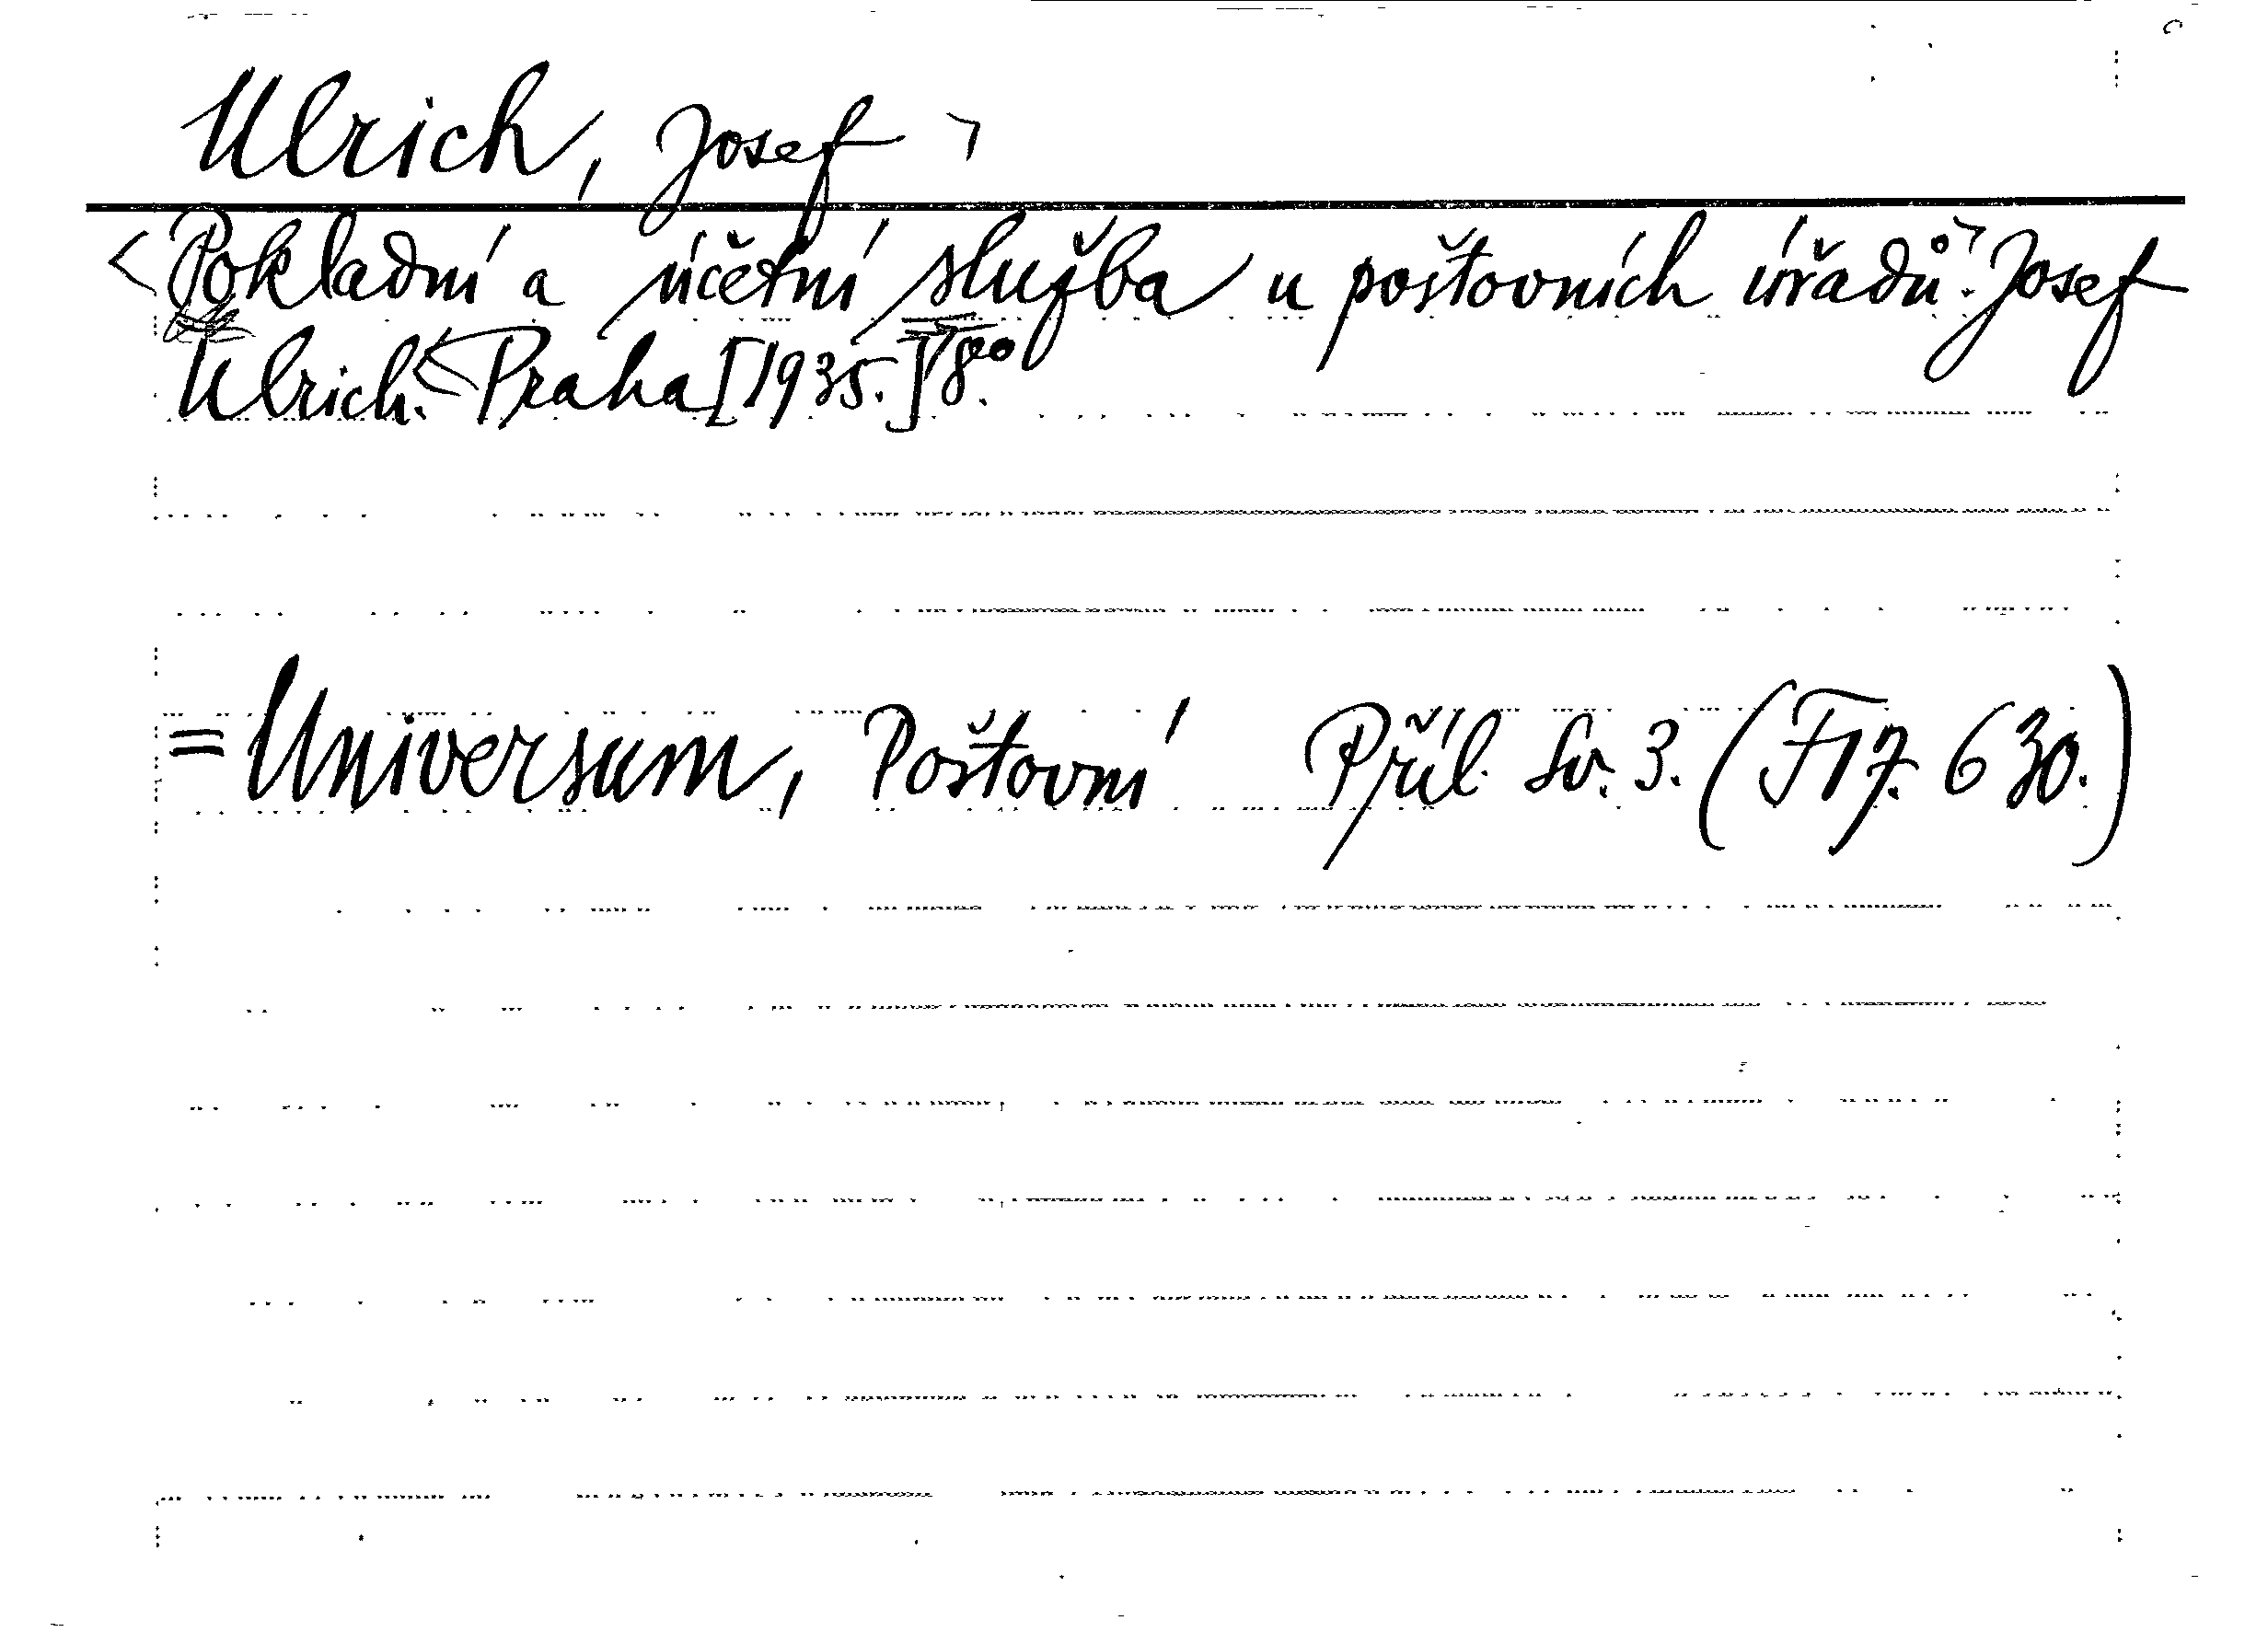 Ulrich, Josef
<Pokladní a účetní služba u poštovních úřadů. Josef
Ulrich. Praha [1935.] 8°.
= Universum, Poštovní Příl. Sv. 3. (F 17. 630.)